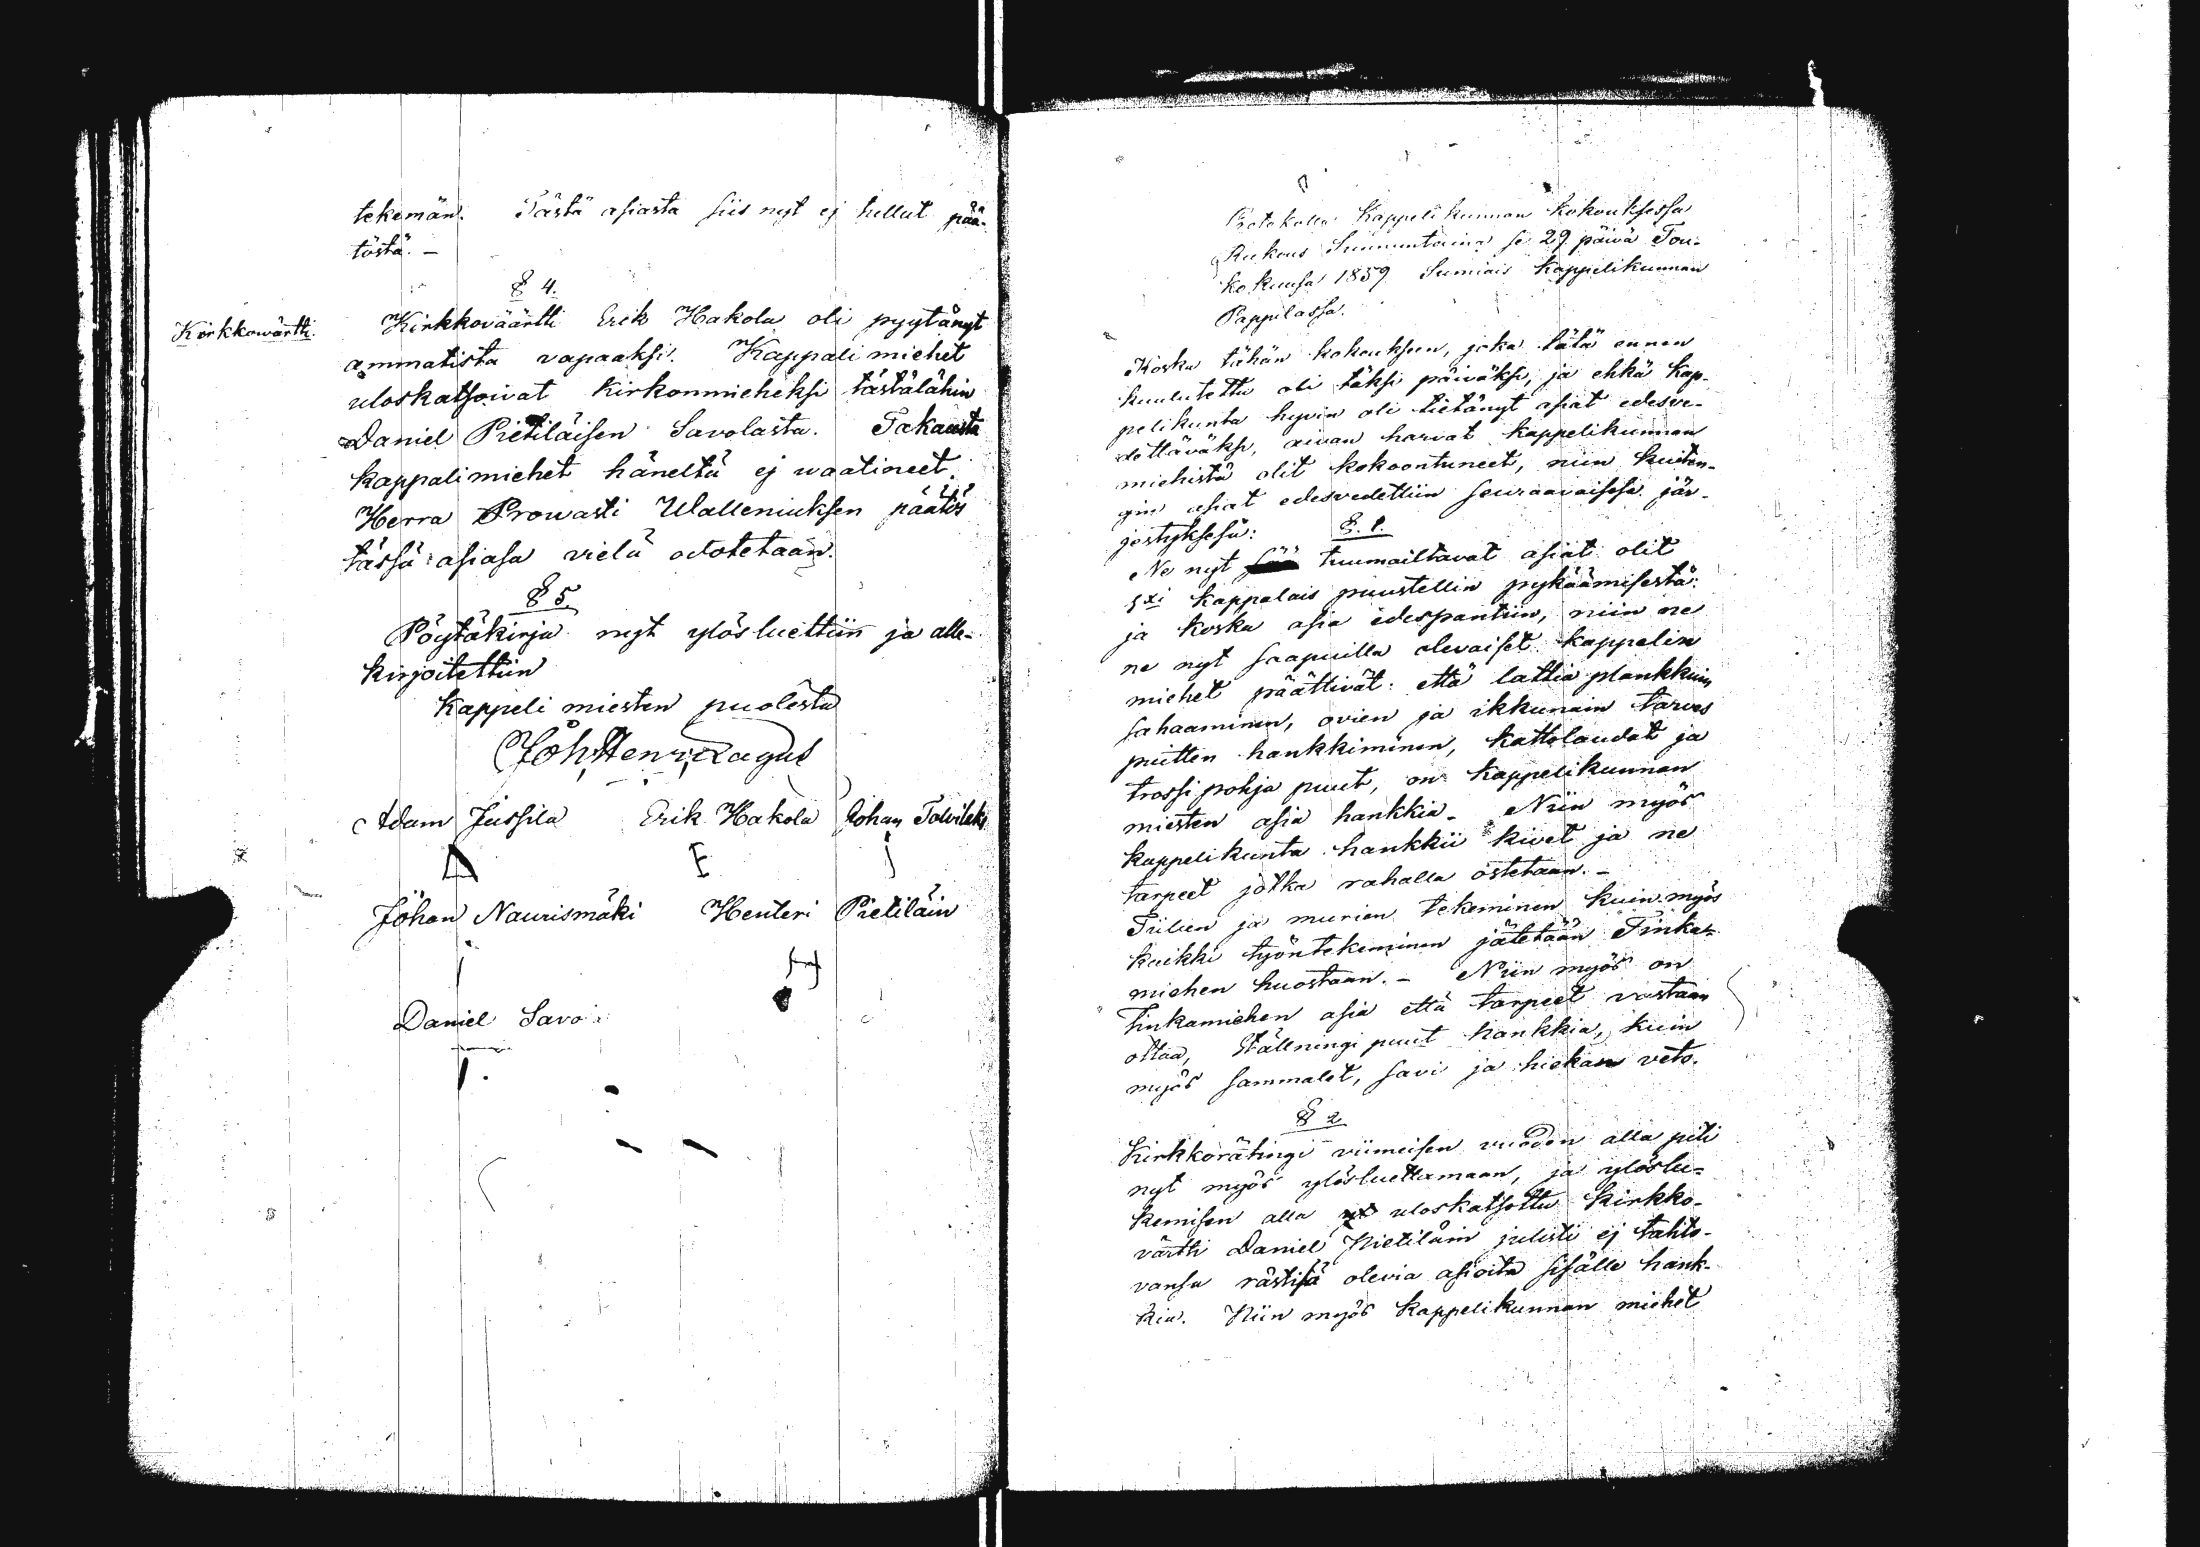 tekemän. Tästä asiasta siis nyt ej tullut pää-
töstä. –
§ 4.
Kirkkowärtti.
Kirkkoväärtti Erik Hakola oli pyytänyt
ammatista vapaaksi. Kappali miehet
uloskatsoivat kirkonmieheksi tästälähin
Daniel Pietiläisen Savolasta. Takausta
kappalimiehet häneltä ej waatineet.
Herra Prowasti Walleniuksen päätös
tässä asiasa vielä odotetaan.
§ 5
Pöytäkirja nyt ylösluettiin ja alle-
kirjoitettiin
Kappeli miesten puolesta
Joh. Henr. Lagus
Adam Jussila Erik Hakola Johan
A E J
Johan Naurismäki Henteri Pietiläin
Daniel Savo
Protokolla Kappelikunnan kokouksessa
Rukous Sunnuntaina se 29 päivä Tou-
kokuusa 1859 Sumiais kappelikunnan
Pappilassa.
Koska tähän kokoukseen, joka tätä ennen
kuulutettu oli täksi päiväksi, ja ehkä kap-
pelikunta hyvin oli tietänyt asiat edesve-
dettäväksi, aivan harvat kappelikunnan
miehistä olit kokoontuneet, niin kuiten-
gin asiat edesvedettiin seuraavaisesa jär-
jestyksesä:
§. 1.
Ne nyt tuumailtavat asiat olit
1xi kappalais puustellin pykäämisestä:
ja koska asia edespantiin, niin ne
ne nyt saapuilla olevaiset kappelin
miehet päättivät: että lattia plankkuin
sahaaminen, ovien ja ikkunain tarves
puitten hankkiminen, kattolaudat ja
trossipohja puut, on kappelikunnan
miesten asia hankkia. Niin myös
kappelikunta hankkii kivet ja ne
tarpeet jotka rahalla ostetaan. –
Tiilien ja murien tekeminen kuin myös
kaikki työntekeminen jätetään Tinka-
miehen huostaan. – Niin myös on
Tinkamiehen asia että tarpeet vastaan
ottaa, ställningi puut hankkia, kuin
myös sammalet, savi ja hiekan veto.
§ 2
Kirkkorätingi viimeisen vuoden alla piti
nyt myös ylösluettamaan, ja ylöslu-
kemisen alla uloskatsottu kirkko-
värtti Daniel Pietiläin julisti ej tahto-
vansa rästisä olevia asioita sisälle hank-
kia. Niin myös kappelikunnan miehet